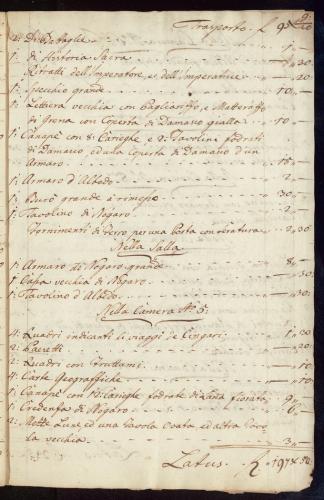 Trasporto. £ 9
2: Battaglie
1: di Historia Sacra 30
2: Ritratti dell'Imperatore, e dell'Imperatrice 20
1: Specchio grande 10
1: Lettiera vecchia con Pagliariffo, e Matteraffo
di Grena con Coperta di Damasco gialla 10
1: Canapè con 8: Carieghe e 2: Tavolini fodrati
di Damasco, ed una Coperta di Damasco d'un
Armaro
1: Armaro d'Albedo 2
1: Burò grande à rimesso 30
1: Tavolino di Nogaro 2
Fornimenti di Ferro per una Porta con 30
Nella Salla
1: Armaro di Nogaro grande 8
1: Cassa vecchia di Nogaro 30
1: Tavolino d'Albedo 30
Nella Camera No. 5:
4: Quadri indicanti li viaggi de Cingari 1 30
2: Paesetti 20
2: Quadri con Fruttami 10
4: Carte Geograffiche 10
1: Canapè con 12: Carieghe fodrate di Lana fiorata 9
1: Credenza di Nogaro
2: Mezze Lune, ed una Tavola Ovata, ed altra
la vecchia 3
Latus. £ 197